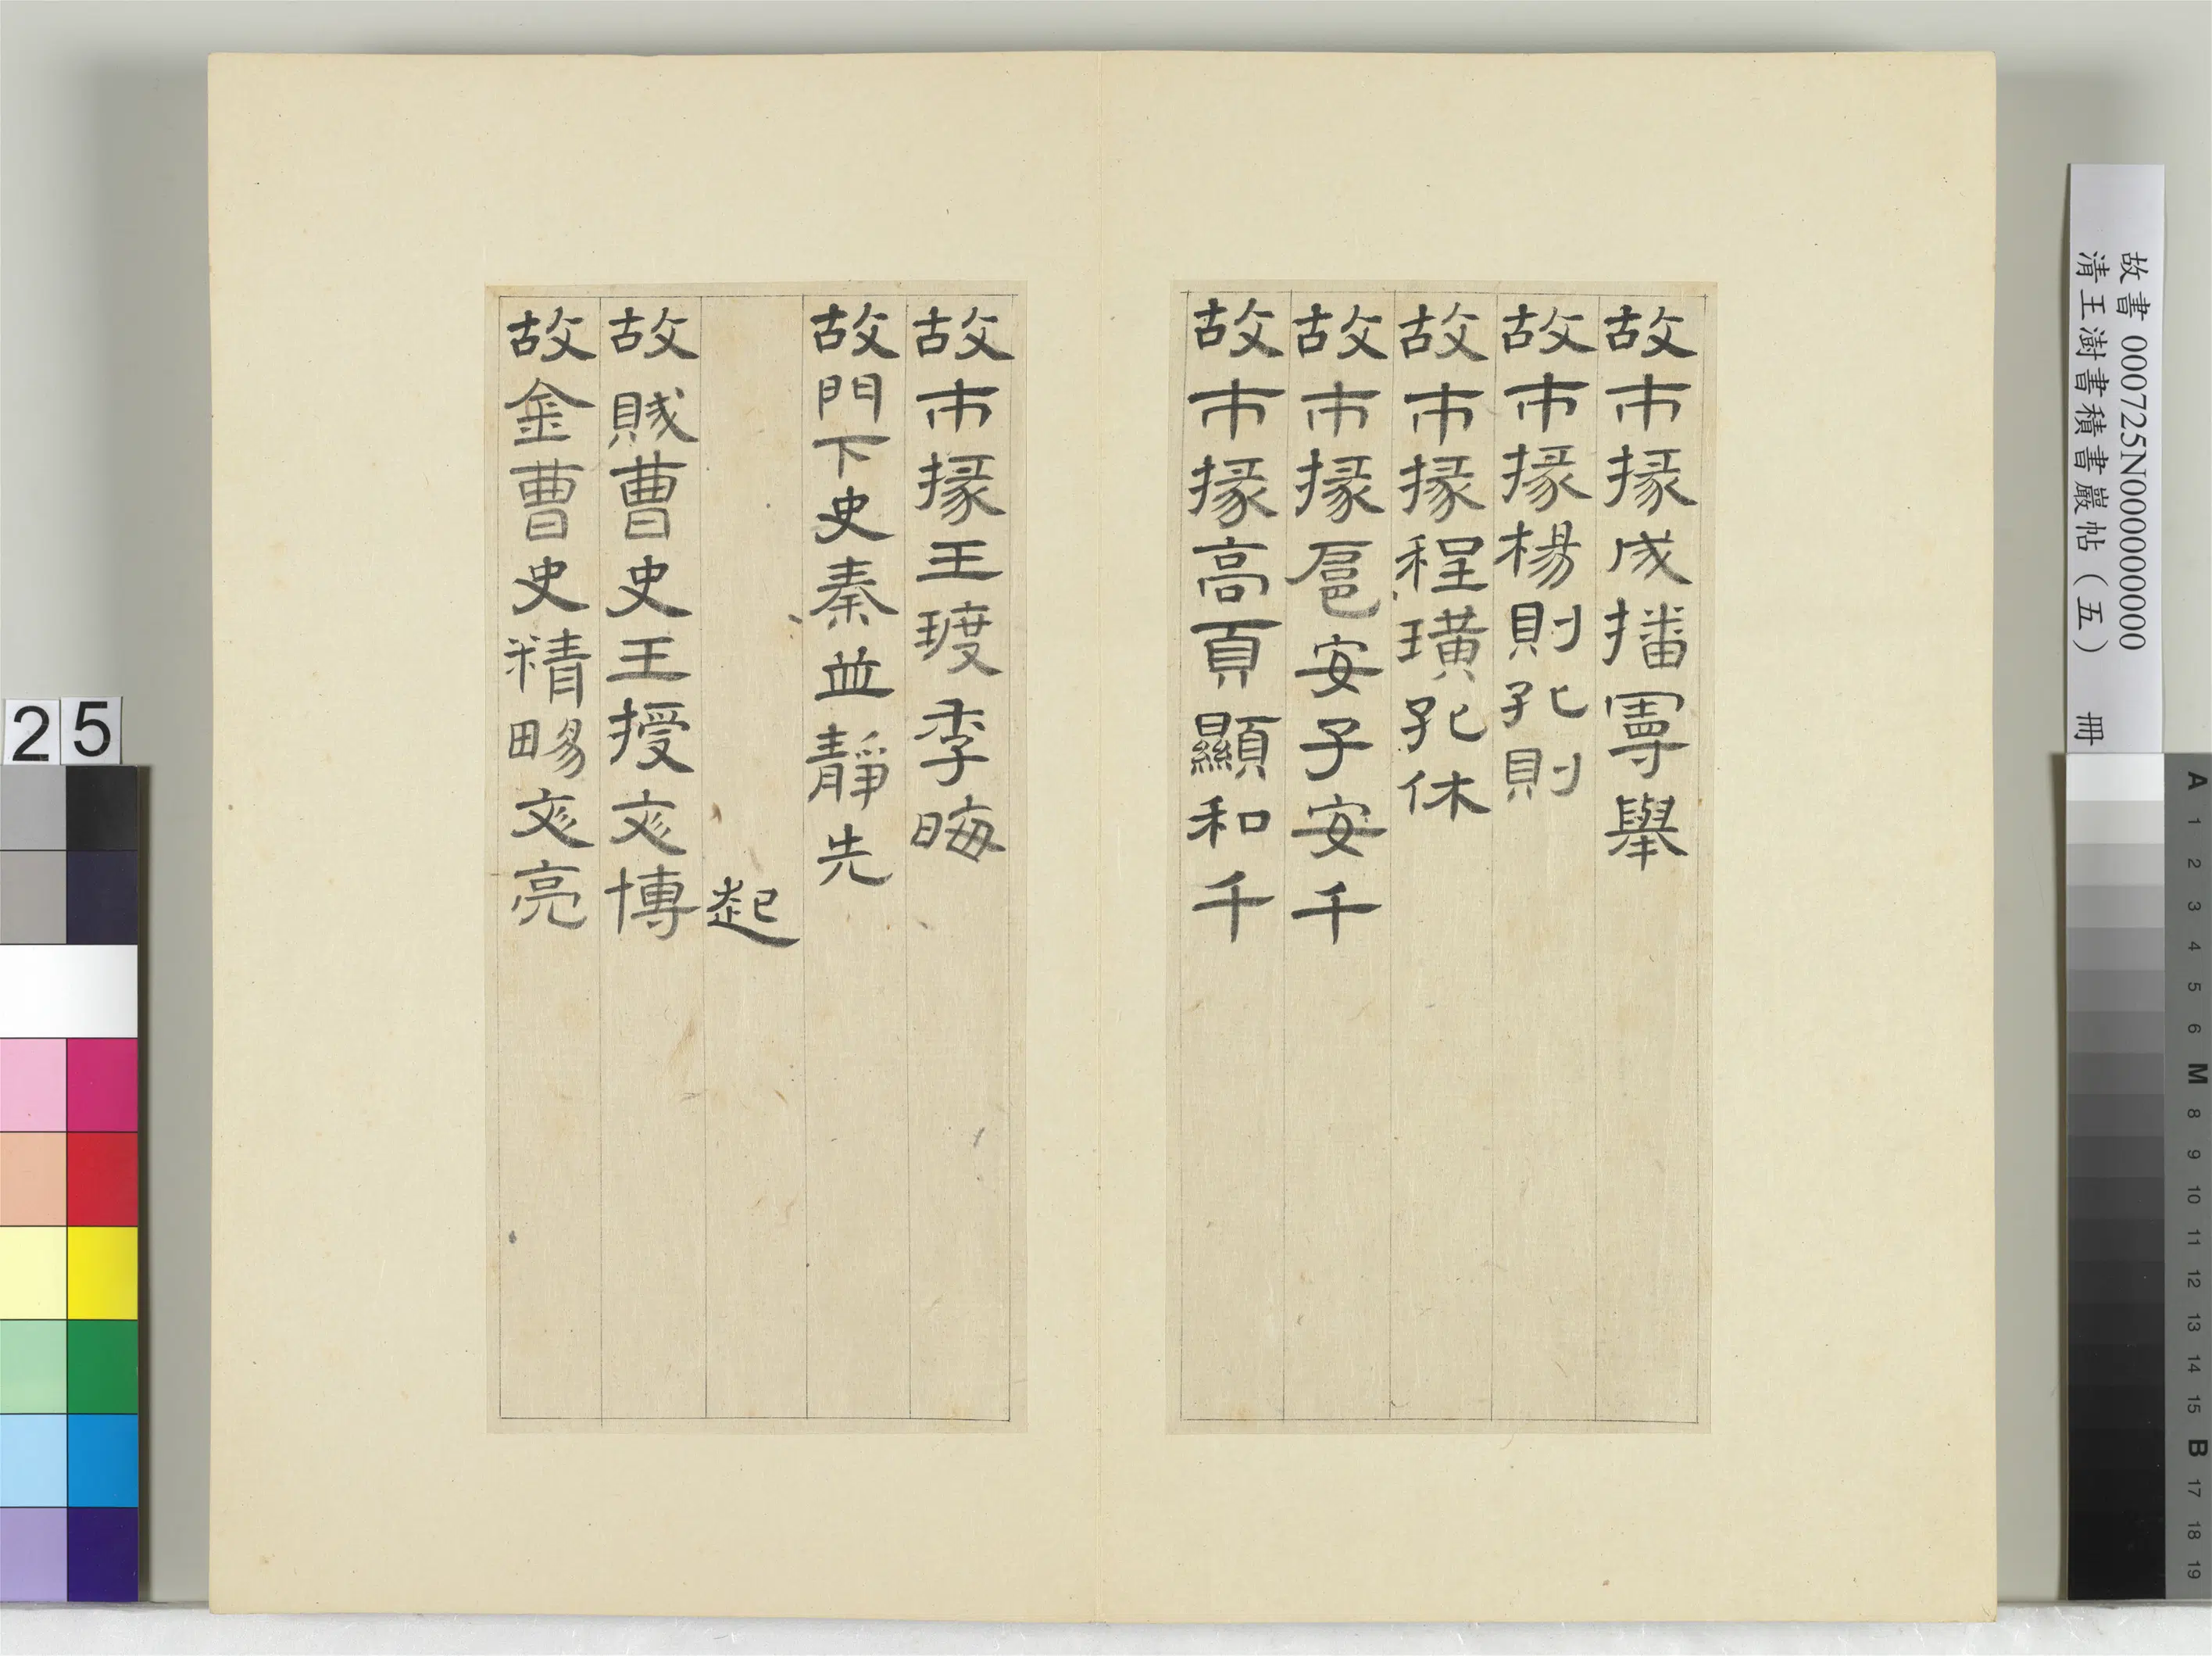 故市掾成播舉
故市掾楊則孔則
故市掾程璜孔休
故市掾扈安子安千
故市掾高頁顯和千
故市掾王季晦
故門下史秦並靜先
起
故賊曹史王授文博
故金曹史精畼文亮
故書 000725N000000000
清王澍書積書巖帖(五) 冊
25
A 1 2 3 4 5 6 M 8 9 10 11 12 13 14 15 B 17 18 19